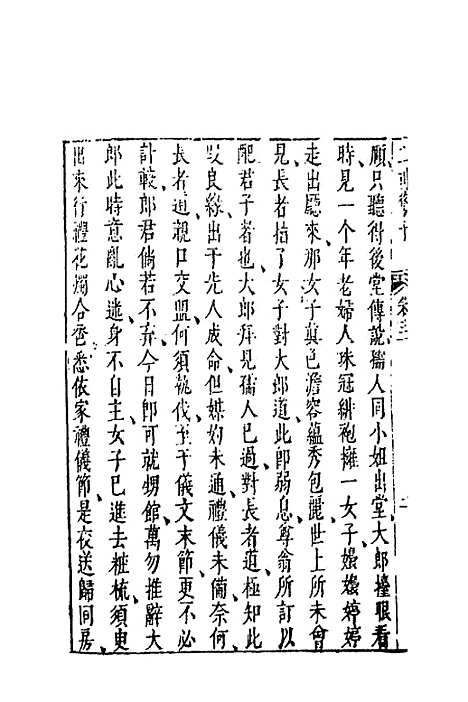 卷三
願只聽得後堂傳說孺人同小姐出堂大郎擡眼看
時見一个年老婦人珠冠緋袍擁一女子嬝嬝婷婷
走出廳來那女子真色澹容蘊秀包麗世上所未曾
見長者指了女子對大郎道此即弱息尊翁所訂以
配君子者也、大郎拜見孺人已過、對長者道極知此
段良緣、出于先人成命、但媒妁未通、禮儀未備、奈何、
長者道、親口交盟、何須執伐、至于儀文末節、更不必
計較、郎君倘若不棄、今日即可就甥館、萬勿推辭、大
郎此時意亂心迷、身不自主、女子已進去粧梳、須臾
出來行禮、花燭合卺、悉依家禮儀節、是夜送歸洞房、